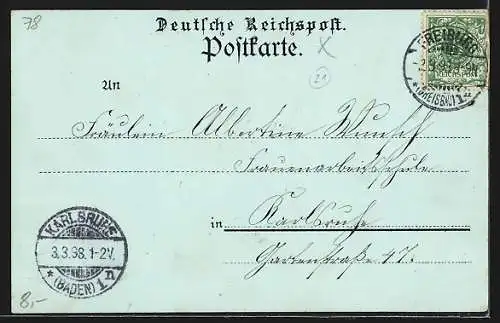 78
Deutsche Reichspost.
Postkarte.
X
21
FREIBURG
3.3.98.
*(BREISGAU) 1
REICHSPOST
An
Fräulein Albertine Wunsch
Frauenarbeitsschule
in Karlsruhe
Gartenstraße 47.
KARLSRUHE
3.3.98.1-2V.
*(BADEN) 1n
8,-